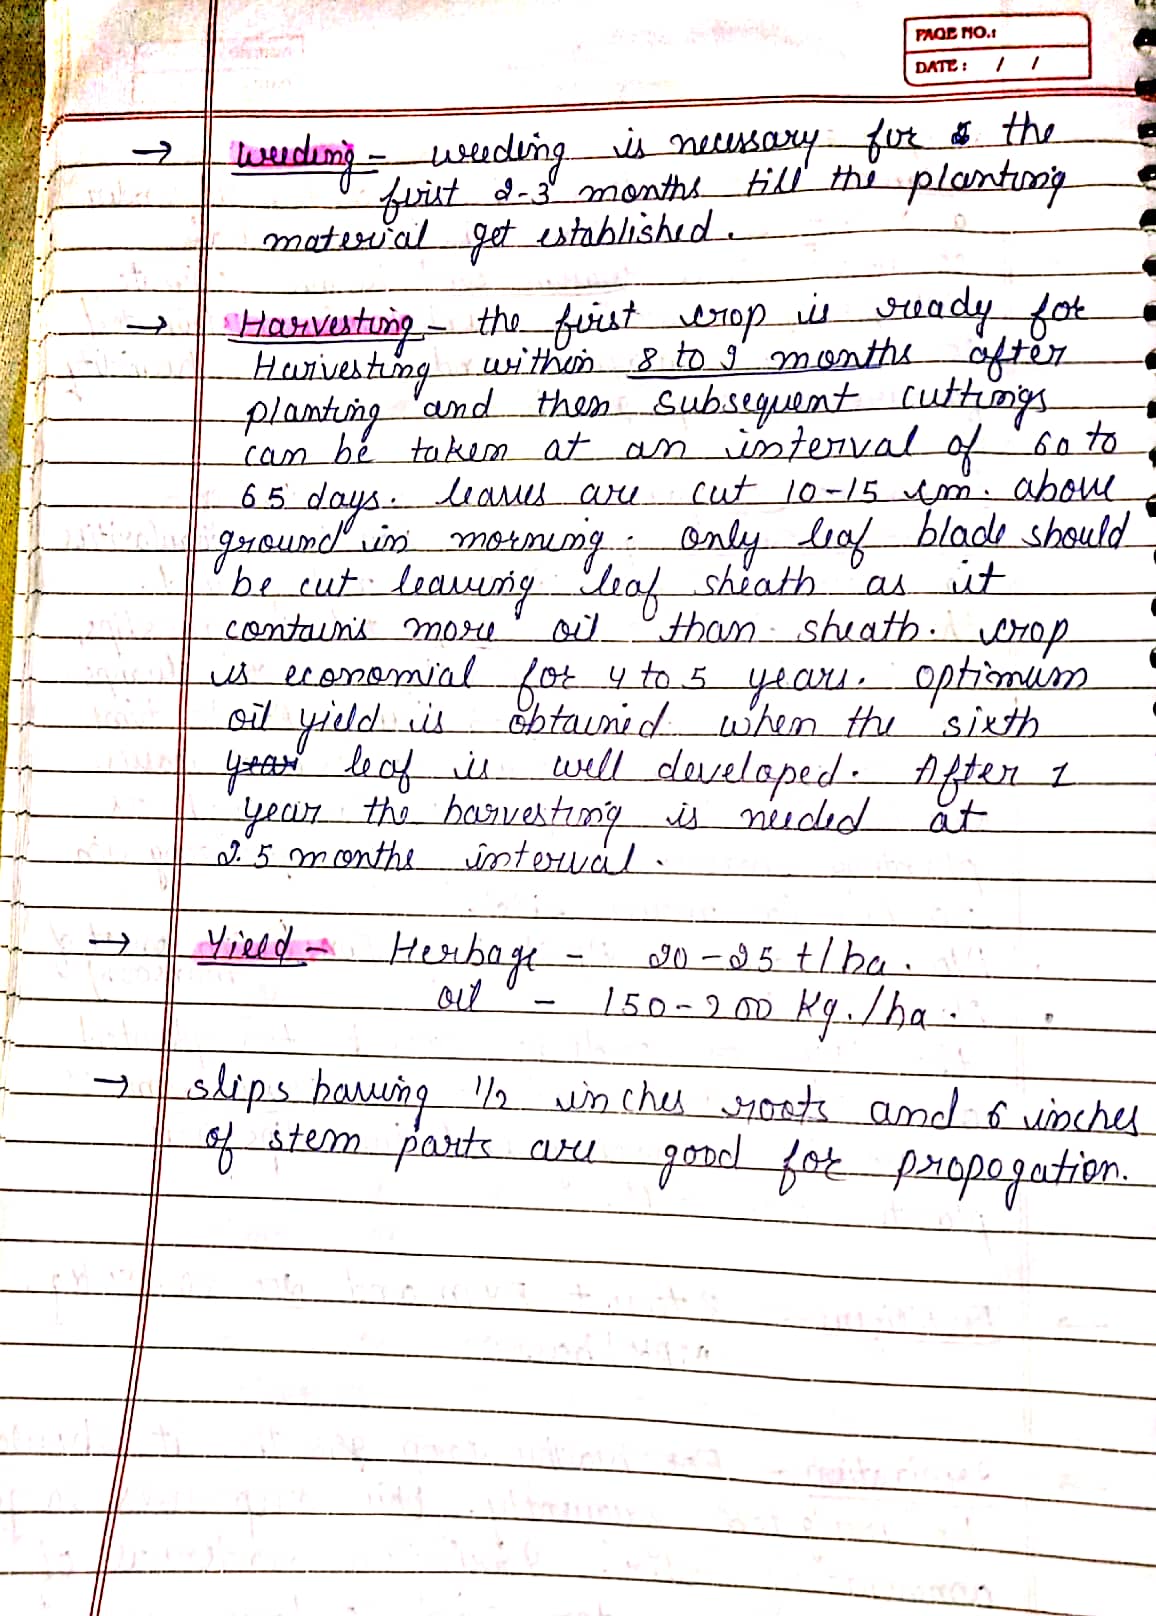 PAGE NO.:
DATE: / /
→ Weeding - weeding is necessary for the
first 2-3 months till the planting
material get established.
→ Harvesting - the first crop is ready for
Harvesting within 8 to 9 months after
planting and then subsequent cuttings
can be taken at an interval of 60 to
65 days. leaves are cut 10-15 cm. above
ground in morning. only leaf blade should
be cut leaving leaf sheath as it
contains more oil than sheath. crop
is economial for 4 to 5 years. optimum
oil yield is obtained when the sixth
year leaf is well developed. After 1
year the harvesting is needed at
2.5 months interval.
→ Yield - Herbage - 20-25 t/ha.
oil - 150-200 Kg./ha.
→ slips having 1/2 inches roots and 6 inches
of stem parts are good for propogation.